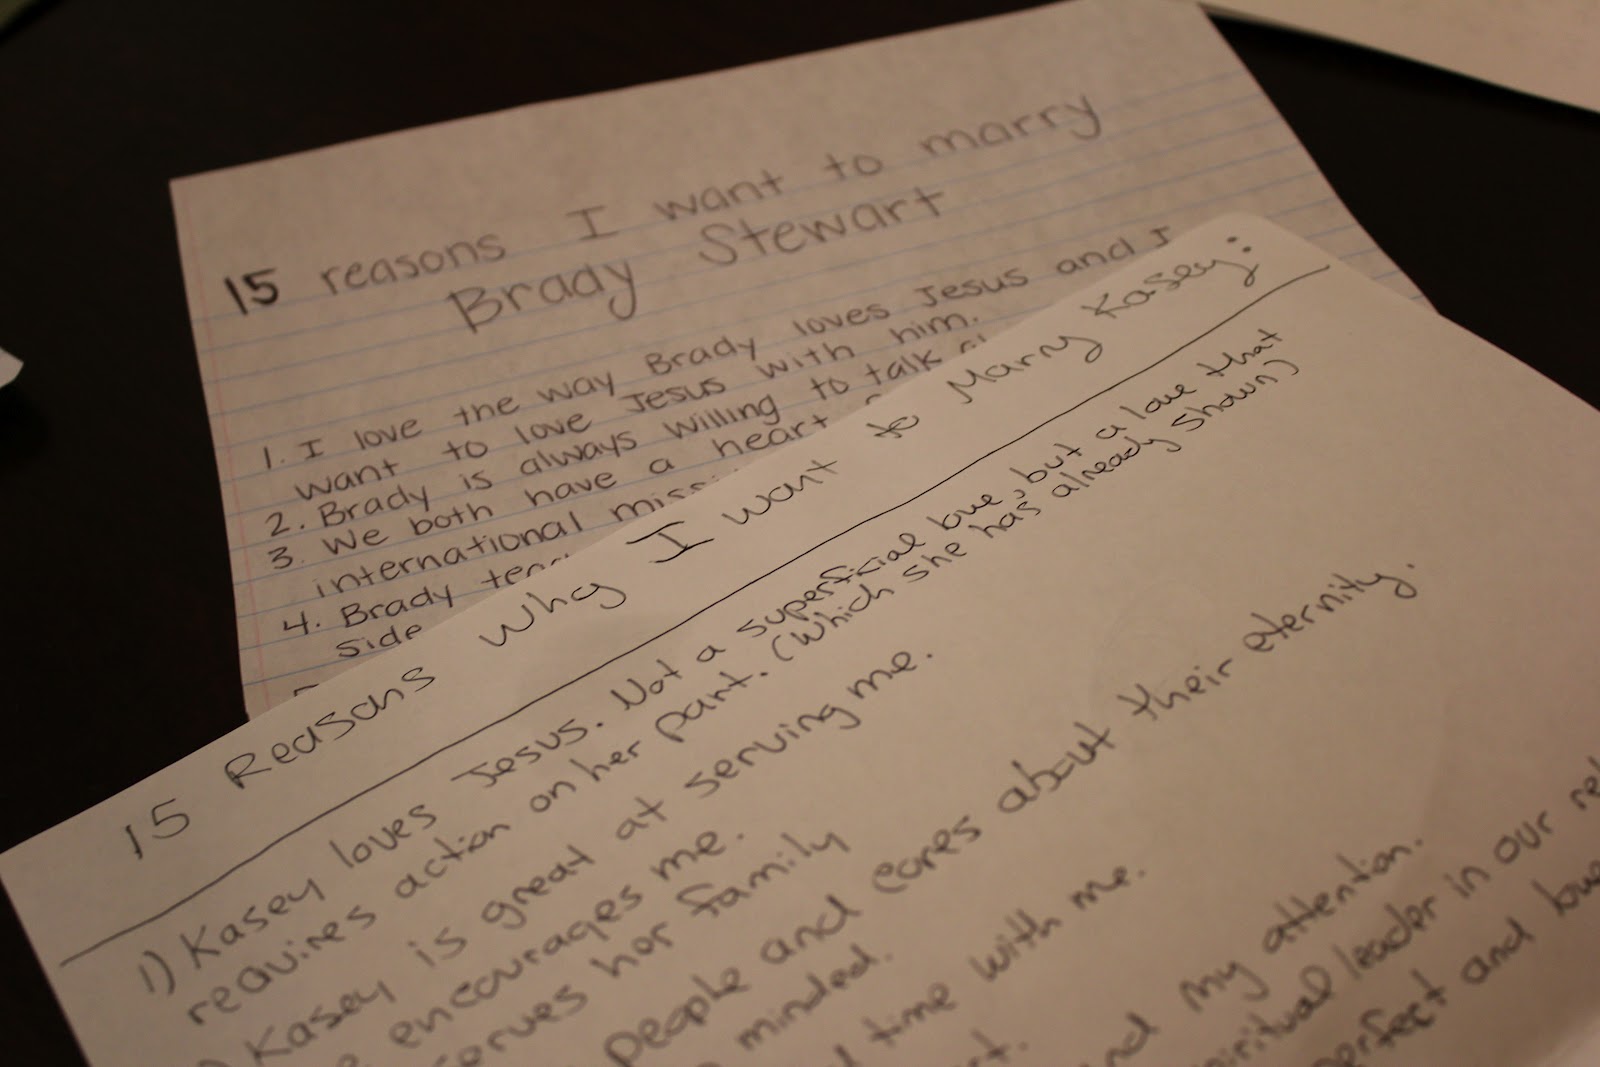 15 reasons I want to marry
Brady Stewart
1. I love the way Brady loves Jesus and I
want to love Jesus with him.
2. Brady is always willing to talk
3. We both have a heart
international
4. Brady
side
15 Reasons Why I want to Marry Kasey:
1) Kasey loves Jesus. Not a superficial love, but a love that
requires action on her part. (Which she has already shown)
Kasey is great at serving me.
encourages me.
her family
people and cares about their eternity.
minded.
time with me.
my attention.
leader in our
and